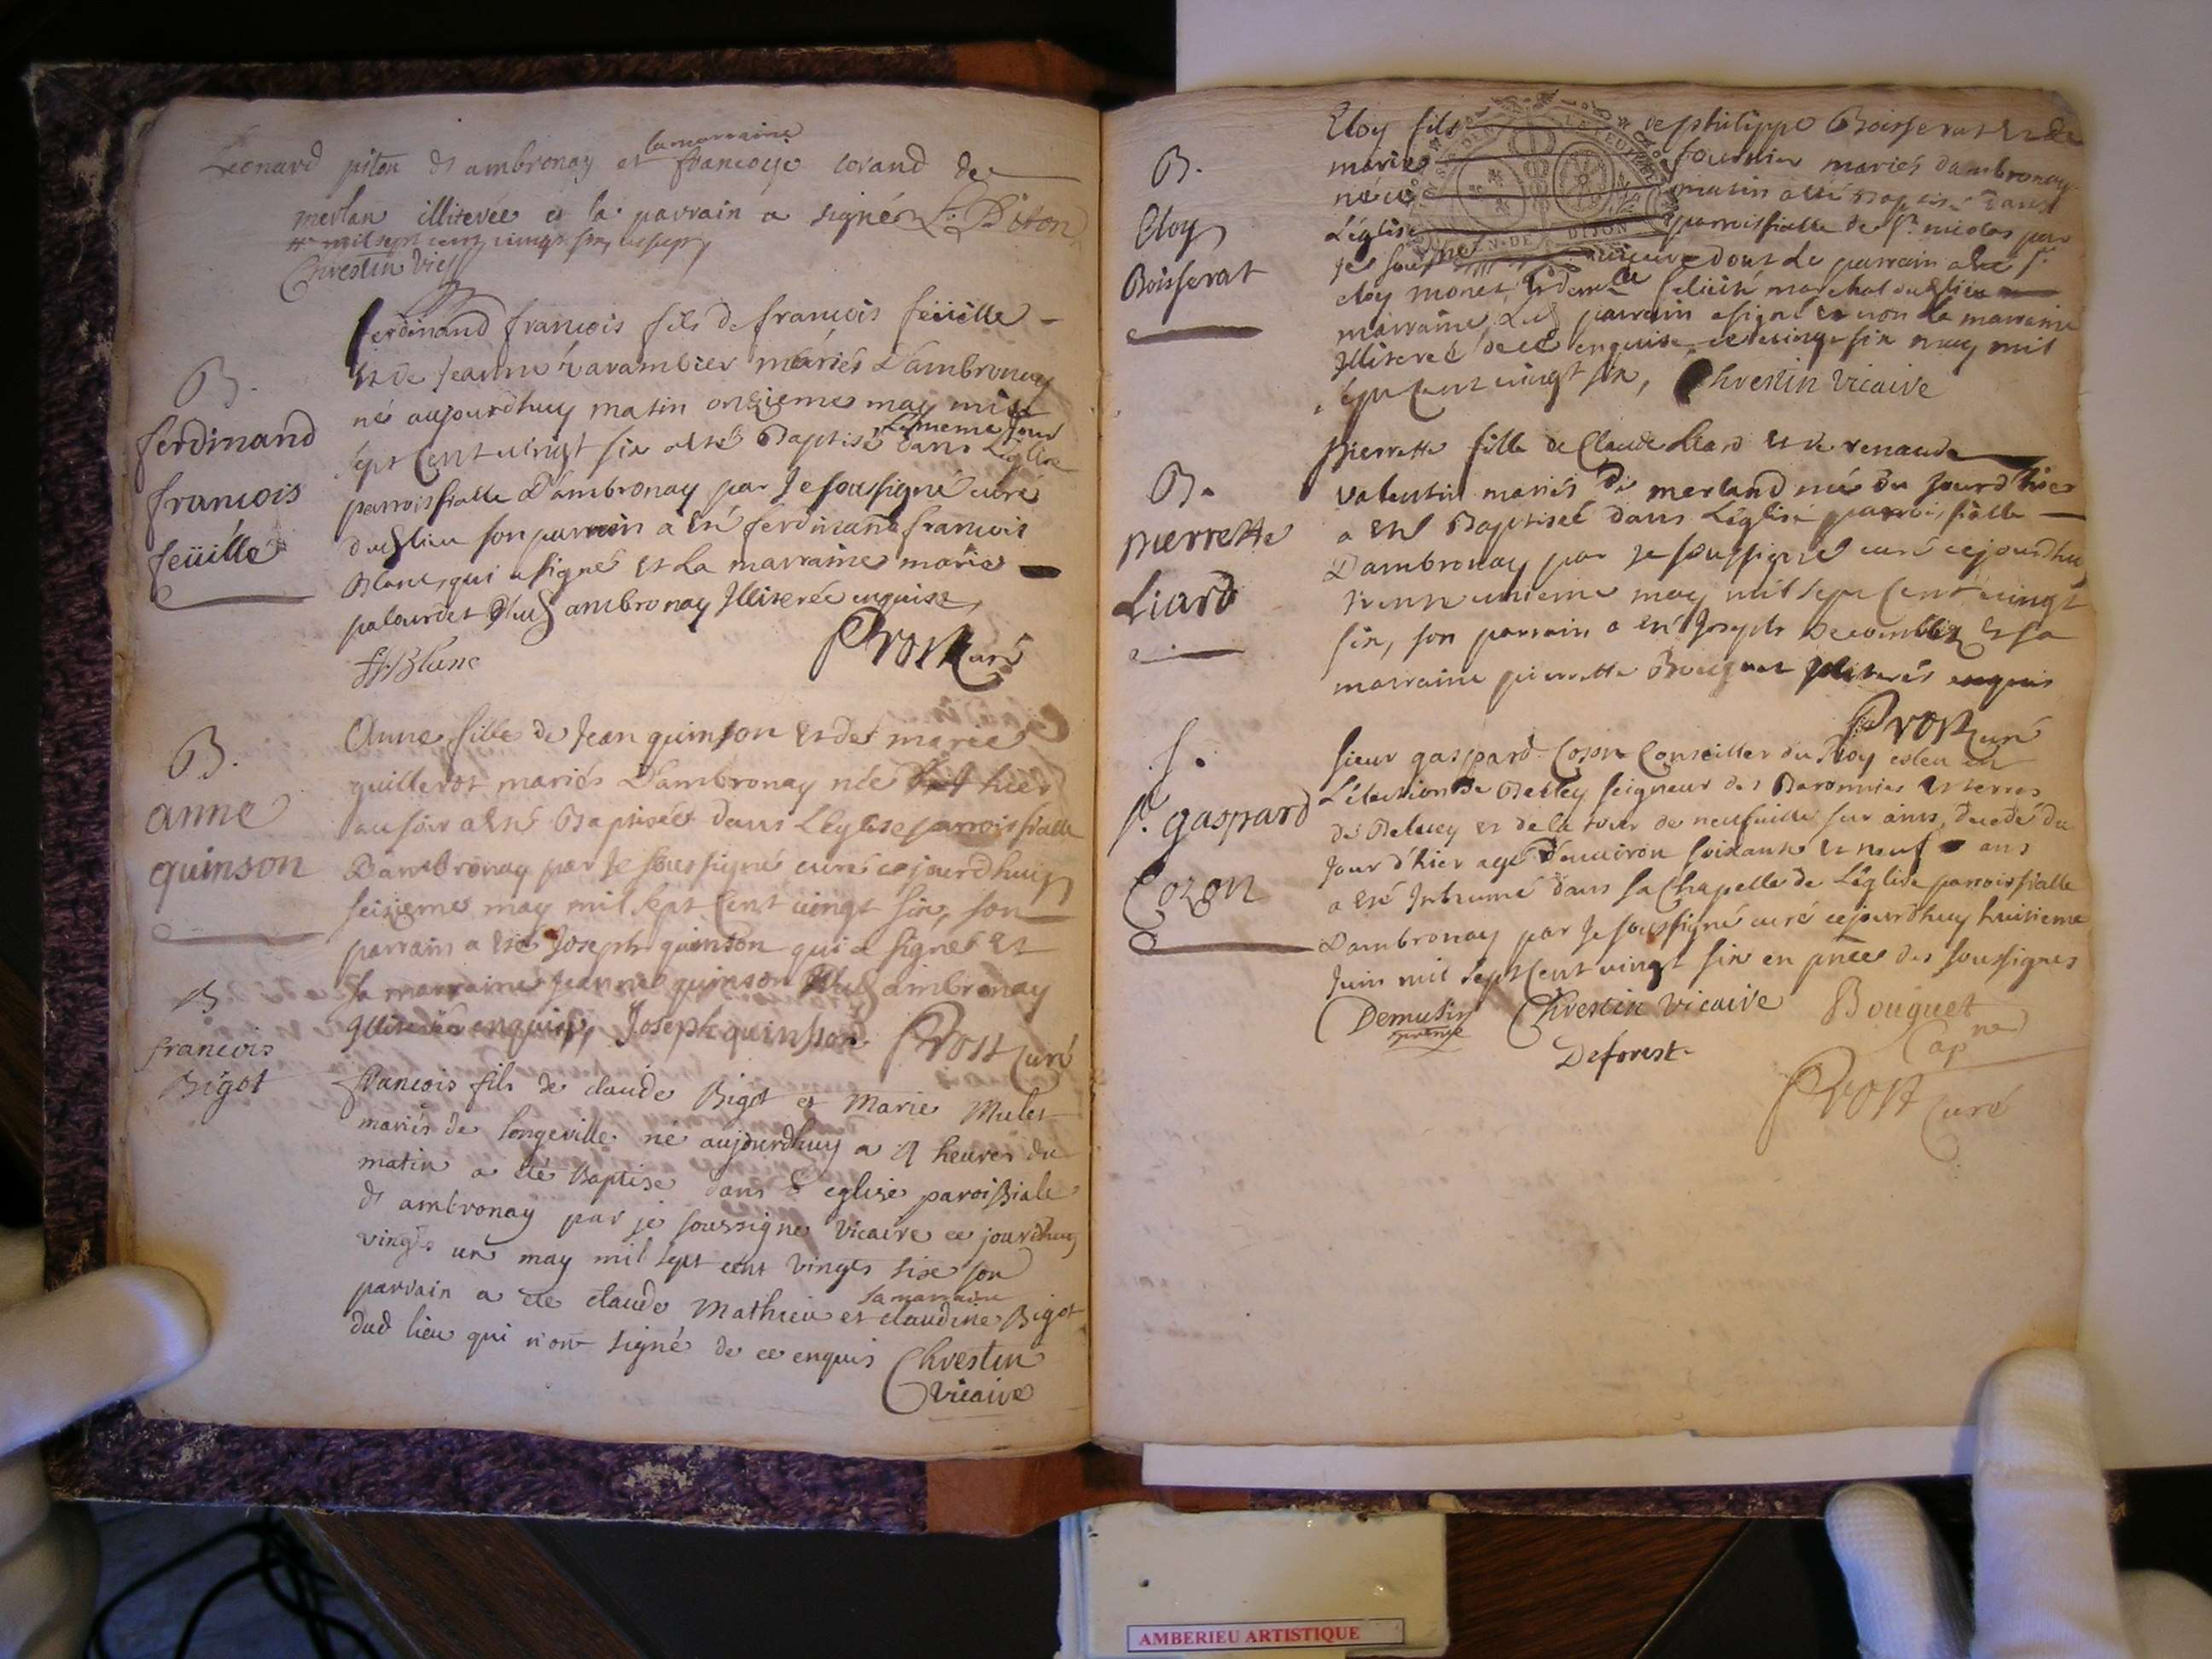 la marraine
Leonard piton d'ambronay et francoise corand de
merlan illiterée et le parrain a signé L. Piton
mil sept cent vingt six
Chrestin vic
B.
ferdinand
francois
feüille
ferdinand francois fils de francois feüille
et de jeanne mariés d'ambronay
né aujourdhuy matin onzieme may mil
le meme jour
sept cent vingt six a esté Baptisé dans l'eglise
parroissialle d'ambronay par je soussigné curé
dud lieu son parrain a esté ferdinand francois
Blanc, qui a signé et la marraine marie
palourdet dud ambronay Illiterée enquise,
ff. Blanc
Prost curé
B.
anne
quinson
Anne fille de Jean quinson et de marie
guillerot mariés d'ambronay née hier
au soir a esté Baptisée dans l'eglise parroissialle
d'ambronay par je soussigné curé cejourdhuy
seizieme may mil sept cent vingt six, son
parrain a esté Joseph quinson qui a signé et
sa marraine jeanne quinson dud ambronay
Illiterée enquise, Joseph quinsson Prost curé
B
francois
Bigot
francois fils de claude Bigot et Marie Mulet
mariés de longeville né aujourdhuy a 4 heures du
matin a été Baptise dans l'eglise paroissiale
d'ambronay par je soussigne vicaire ce jourdhuy
vingt un may mil sept cent vingts six son
sa marraine
parrain a été claude Mathieu et claudine Bigot
dud lieu qui n'ont signé de ce enquis Chrestin
vicaire
B.
Eloy
Boisserat
Eloy fils de philippe Boisserat et de
marie fournier mariés d'ambronay
né matin a été Baptisé dans
l'église parroissialle de St nicolas par
je dont le parrain a été sr
eloy monet
marraine Led parrain a signé et non la marraine
Illiteree de ce enquise, ce vingt six may mil
sept cent vingt six, Chrestin vicaire
B.
pierrette
Liard
pierrette fille de Claude Liard et de renaude
valentin mariés de merland née du jourd'hier
a esté Baptisée dans l'église parroissialle
d'ambronay par je soussigné curé cejourdhuy
trente unieme may mil sept cent vingt
six, son parrain a esté Joseph et sa
marraine pierrette Bouquet Illiterés enquis
Prost curé
S.
Sr. gaspard
Cozon
sieur gaspard Cozon Conseiller du Roy esleu en
L'élection de Belley seigneur des Baronnies et terres
de et de la tour de neufville sur ains, decedé du
jour d'hier agé d'environ soixante et neuf ans
a esté Inhumé dans sa Chapelle de l'église parroissialle
d'ambronay par je soussigné curé cejourdhuy huitieme
juin mil sept cent vingt six en pnce des soussignes
Demusin Chrestin vicaire Bouguet
Capne
Deforest
Prost curé
GEN. DE DIJON
AMBERIEU ARTISTIQUE